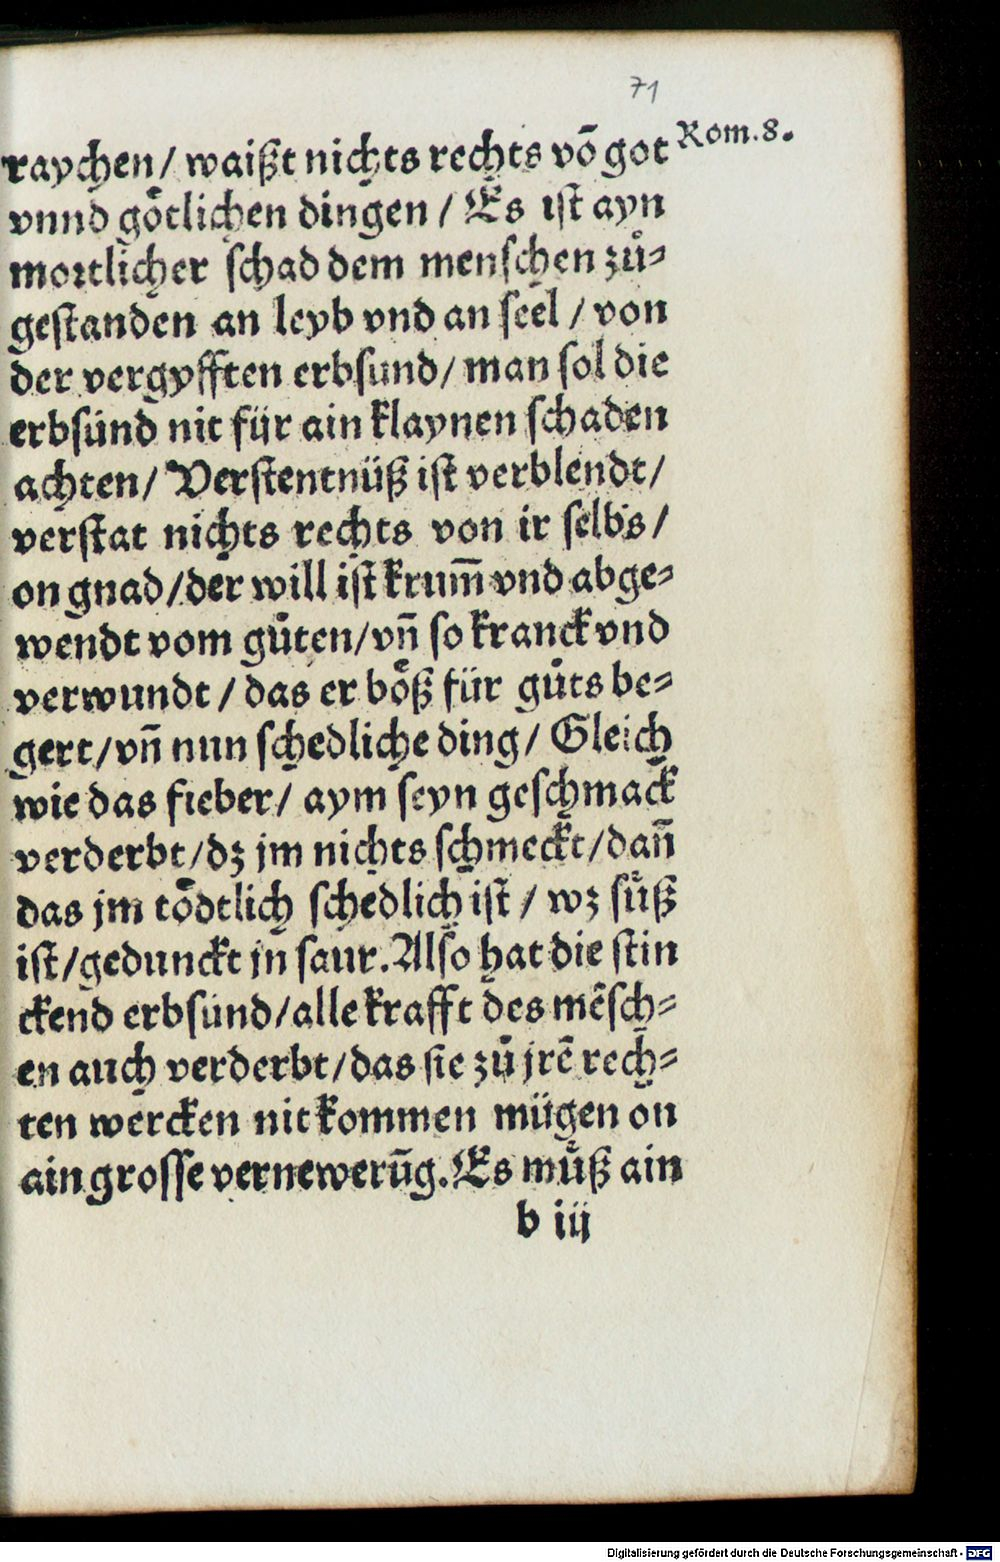 71
raychen/ waißt nichts rechts võ got Rom.8.
vnnd goͤtlichen dingen / Es ist ayn
mortlicher schad dem menschen zuͦ-
gestanden an leyb vnd an seel / von
der vergyfften erbsund/ man sol die
erbsünd nit für ain klaynen schaden
achten/ Verstentnüß ist verblendt/
verstat nichts rechts von ir selbs/
on gnad/der will ist krum̃ vnd abge-
wendt vom guͦten/vñ so kranck vnd
verwundt / das er boͤß für guͦts be-
gert/vñ nun schedliche ding/ Gleich
wie das fieber/ aym seyn geschmack
verderbt/dz jm nichts schmeckt/dañ
das jm toͤdtlich schedlich ist / wz suͤß
ist/gedunckt jn saur. Also hat die stin
ckend erbsünd/alle krafft des mẽsch-
en auch verderbt/das sie zuͦ jrẽ rech-
ten wercken nit kommen mügen on
ain grosse vernewerũg. Es muͦß ain
b iij
Digitalisierung gefördert durch die Deutsche Forschungsgemeinschaft - DFG